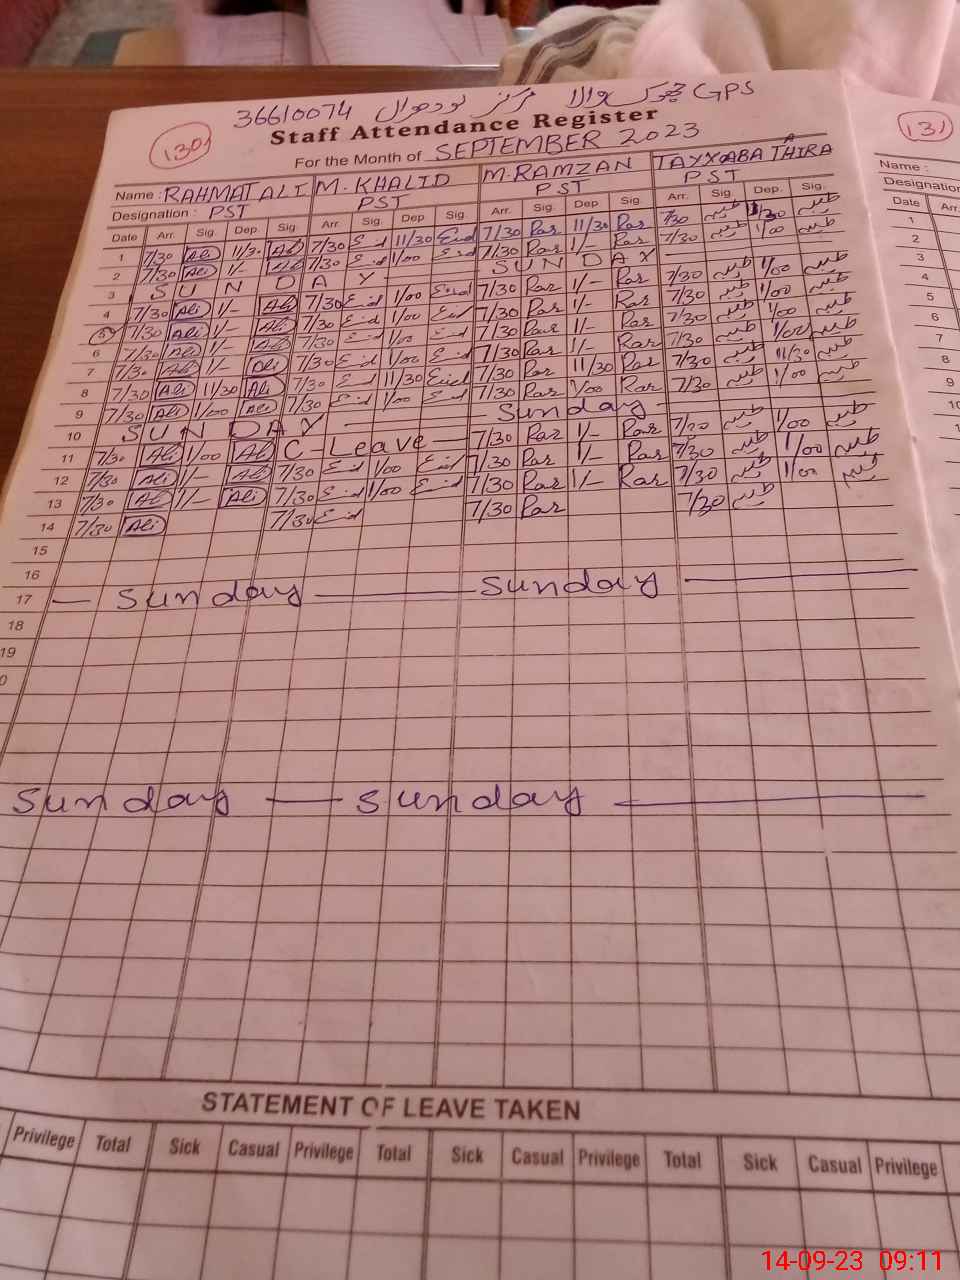 36610074 مرکز نودھوال چھوکر والا GPS
130
Staff Attendance Register
131
For the Month of SEPTEMBER 2023
Name : RAHMAT ALI M. KHALID M. RAMZAN TAYYABA TAHIRA
Name :
Designation : PST PST PST PST
Designation
Date Arr. Sig. Dep Sig. Arr. Sig. Dep Sig. Arr. Sig. Dep Sig. Arr. Sig. Dep. Sig.
Date Arr.
1 7/30 Ali 11/30 Ali 7/30 Eid 11/30 Eid 7/30 Rar 11/30 Rar 7/30 طیبہ 11/30 طیبہ
2 7/30 Ali 1/- Ali 7/30 Eid 1/00 Eid 7/30 Rar 1/- Rar 7/30 طیبہ 1/00 طیبہ
3 SUNDAY SUNDAY
4 7/30 Ali 1/- Ali 7/30 Eid 1/00 Eid 7/30 Rar 1/- Rar 7/30 طیبہ 1/00 طیبہ
5 7/30 Ali 1/- Ali 7/30 Eid 1/00 Eid 7/30 Rar 1/- Rar 7/30 طیبہ 1/00 طیبہ
6 7/30 Ali 1/- Ali 7/30 Eid 1/00 Eid 7/30 Rar 1/- Rar 7/30 طیبہ 1/00 طیبہ
7 7/30 Ali 1/- Ali 7/30 Eid 1/00 Eid 7/30 Rar 1/- Rar 7/30 طیبہ 1/00 طیبہ
8 7/30 Ali 11/30 Ali 7/30 Eid 11/30 Eid 7/30 Rar 11/30 Rar 7/30 طیبہ 11/30 طیبہ
9 7/30 Ali 1/00 Ali 7/30 Eid 1/00 Eid 7/30 Rar 1/00 Rar 7/30 طیبہ 1/00 طیبہ
10 SUNDAY Sunday
11 7/30 Ali 1/00 Ali C-Leave 7/30 Rar 1/- Rar 7/30 طیبہ 1/00 طیبہ
12 7/30 Ali 1/- Ali 7/30 Eid 1/00 Eid 7/30 Rar 1/- Rar 7/30 طیبہ 1/00 طیبہ
13 7/30 Ali 1/- Ali 7/30 Eid 1/00 Eid 7/30 Rar 1/- Rar 7/30 طیبہ 1/00 طیبہ
14 7/30 Ali 7/30 Eid 7/30 Rar 7/30 طیبہ
15
16
17 Sunday Sunday
18
19
0
Sunday Sunday
1
2
3
4
5
6
7
8
9
10
STATEMENT OF LEAVE TAKEN
Privilege Total Sick Casual Privilege Total Sick Casual Privilege Total Sick Casual Privilege
14-09-23 09:11